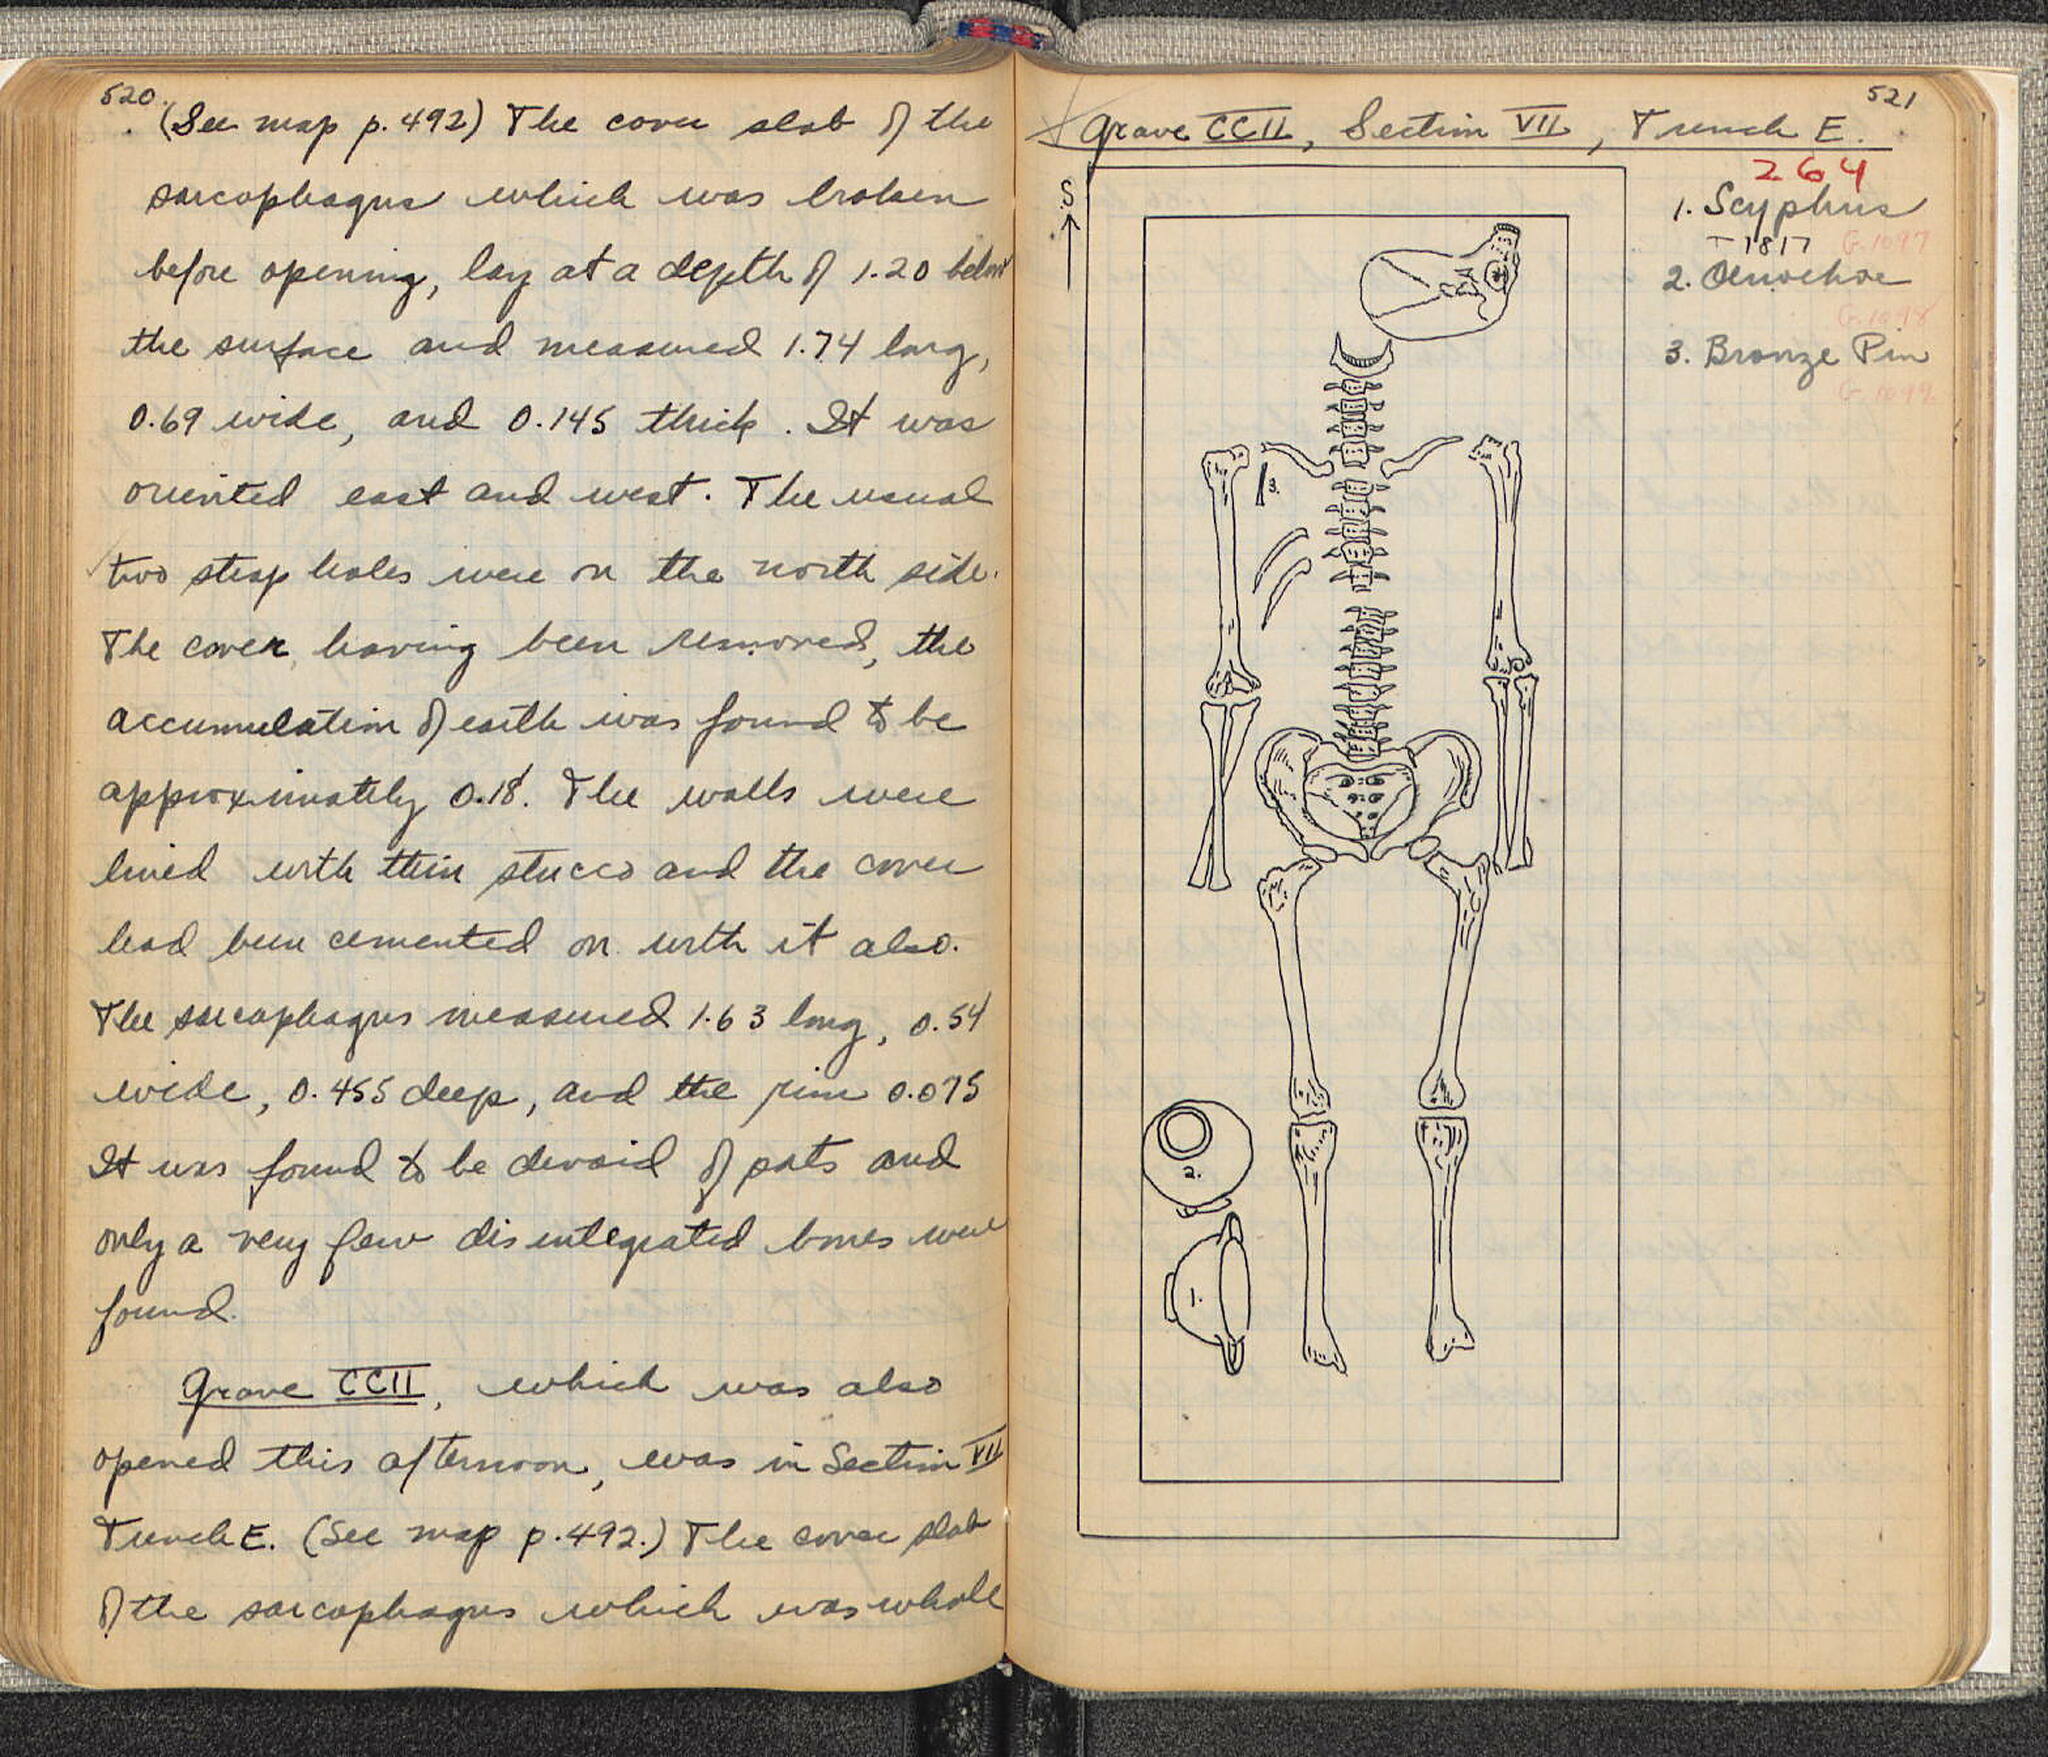 520.
(See map p. 492) The cover slab of the
sarcophagus which was broken
before opening, lay at a depth of 1.20 below
the surface and measured 1.74 long,
0.69 wide, and 0.145 thick. It was
oriented east and west. The usual
two strap holes were on the north side.
The cover, having been removed, the
accumulation of earth was found to be
approximately 0.18. The walls were
lined with thin stucco and the cover
had been cemented on with it also.
The sarcophagus measured 1.63 long, 0.54
wide, 0.455 deep, and the rim 0.075
It was found to be devoid of pots and
only a very few disintegrated bones were
found.
Grave CCII, which was also
opened this afternoon, was in Section VII
Trench E. (See map p. 492.) The cover slab
of the sarcophagus which was whole
521
Grave CCII, Section VII, Trench E.
264
S
1. Scyphus
T 1817 G.1097
2. Oenochoe
G.1098
3. Bronze Pin
G.1099
3.
2.
1.